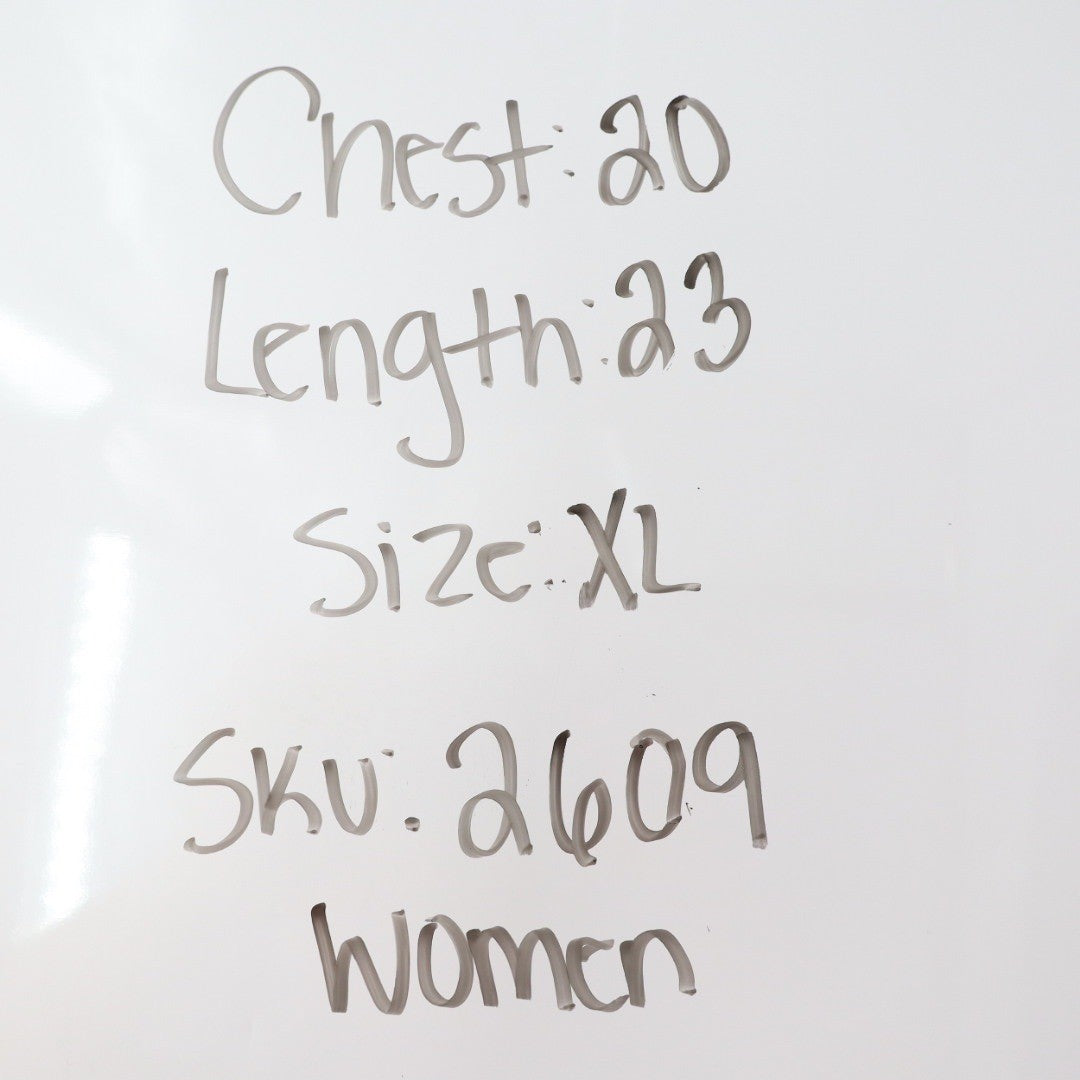 Chest: 20
Length: 23
Size: XL
SKU: 2609
Women